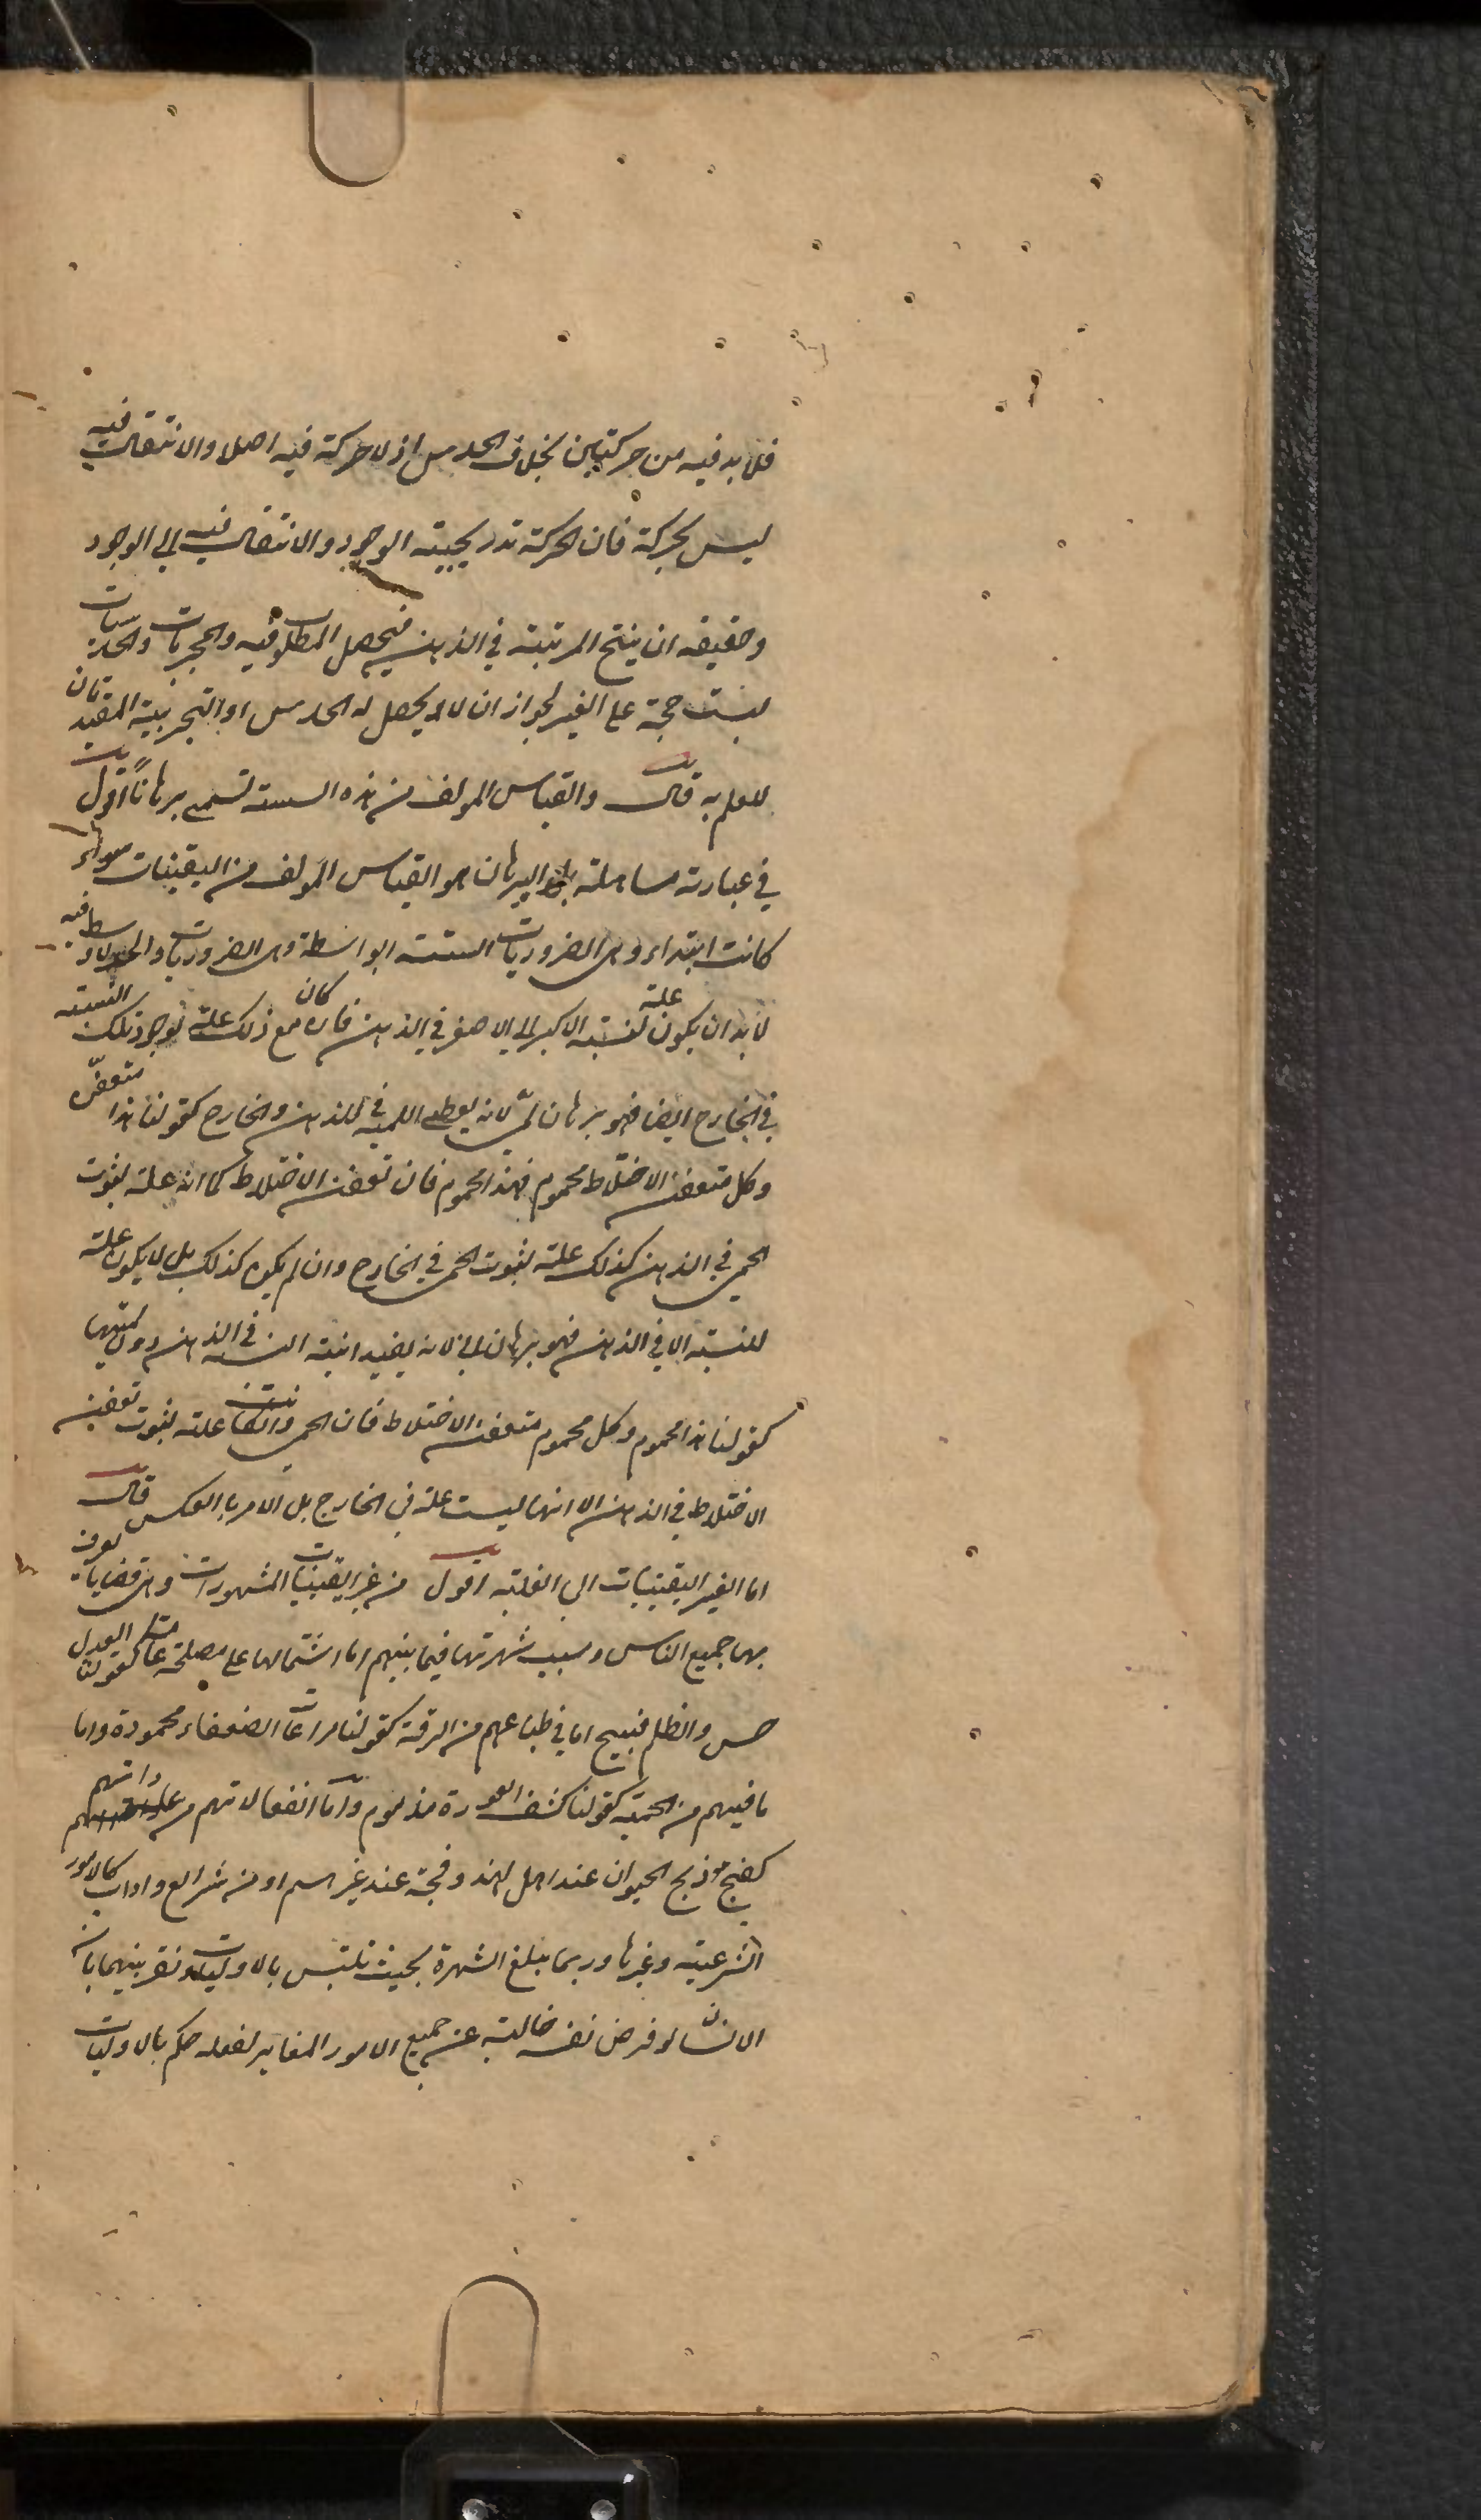 فلا بد فيه من حركتين بخلاف الحدس اذ لا حركة فيه اصلا والانتقال فيه
ليس بحركة فان الحركة تدريجية الوجود والانتقال فيه الى الوجود
وحقيقه ان ينتج المرتبة في الذهن فيحصل المطلوب فيه والمجربات والحدسيات
ليست حجة على الغير لجواز ان لا يحصل له الحدس او التجربية المفيدتان
للعلم به قال والقياس المولف من هذه الستة تسمى برهانا اقول
في عبارته مساهلة بل البرهان هو القياس المولف من اليقينيات سواء
كانت ابتداء وهى الضروريات الستة او بواسطة وهى الضروريات والحد الاوسط فيه
لا بد ان يكون علة لنسبة الاكبر الى الاصغر في الذهن فان كان مع ذلك علة لوجود تلك النسبة
في الخارج ايضا فهو برهان لمى لانه يعطى اللمية في الذهن والخارج كقولنا هذا متعفن
وكل متعفن الاختلاط محموم فهذا محموم فان تعفن الاختلاط كما انه علة لثبوت
الحمى في الذهن كذلك علة لثبوت الحمى في الخارج وان لم يكن كذلك بل لا يكون علة
للنسبة الا في الذهن فهو برهان انى لانه يفيد انية النسبة في الذهن دون لميتها
كقولنا هذا محموم وكل محموم متعفن الاختلاط فان الحمى وان كانت علة لثبوت تعفن
الاختلاط في الذهن الا انها ليست علة في الخارج بل الامر بالعكس قال
اما الغير اليقينيات الى الغلبة اقول من غير اليقينيات المشهورات وهى قضايا يعرف
بها جميع الناس وسبب شهرتها فيما بينهم اما اشتمالها على مصلحة عامة كقولنا العدل
حسن والظلم قبيح اما في طباعهم من الرقة كقولنا مراعات الضعفاء محمودة واما
ما فيهم من الحمية كقولنا كشف العورة مذموم واما انفعالاتهم من عاداتهم
كقبح ذبح الحيوان عند اهل الهند وقبحه عند غيرهم او من شرايع واداب كالامور
الشرعية وغيرها وربما يبلغ الشهرة بحيث تلتبس بالاوليات ونفرق بينهما بان
الانسان لو فرض نفسه خالية عن جميع الامور المغاير لعقله حكم بالاوليات